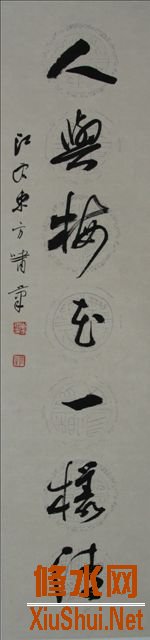 人與梅花一樣清
東方嘯筆
修水网
XiuShui.Net